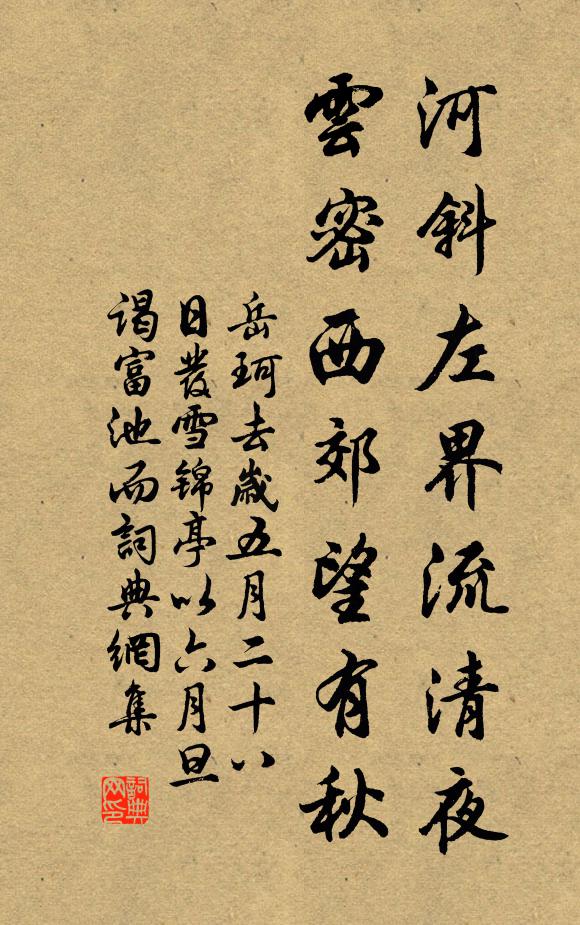 河斜左界流清夜
雲密西郊望有秋
岳珂去歲五月二十八
日發雪錦亭以六月旦
謁富池而詞典網集
詞典網印